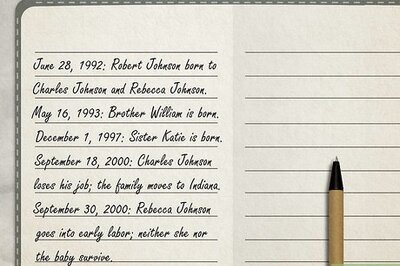 June 28, 1992: Robert Johnson born to
Charles Johnson and Rebecca Johnson.
May 16, 1993: Brother William is born.
December 1, 1997: Sister Katie is born.
September 18, 2000: Charles Johnson
loses his job; the family moves to Indiana.
September 30, 2000: Rebecca Johnson
goes into early labor; neither she nor
the baby survive.